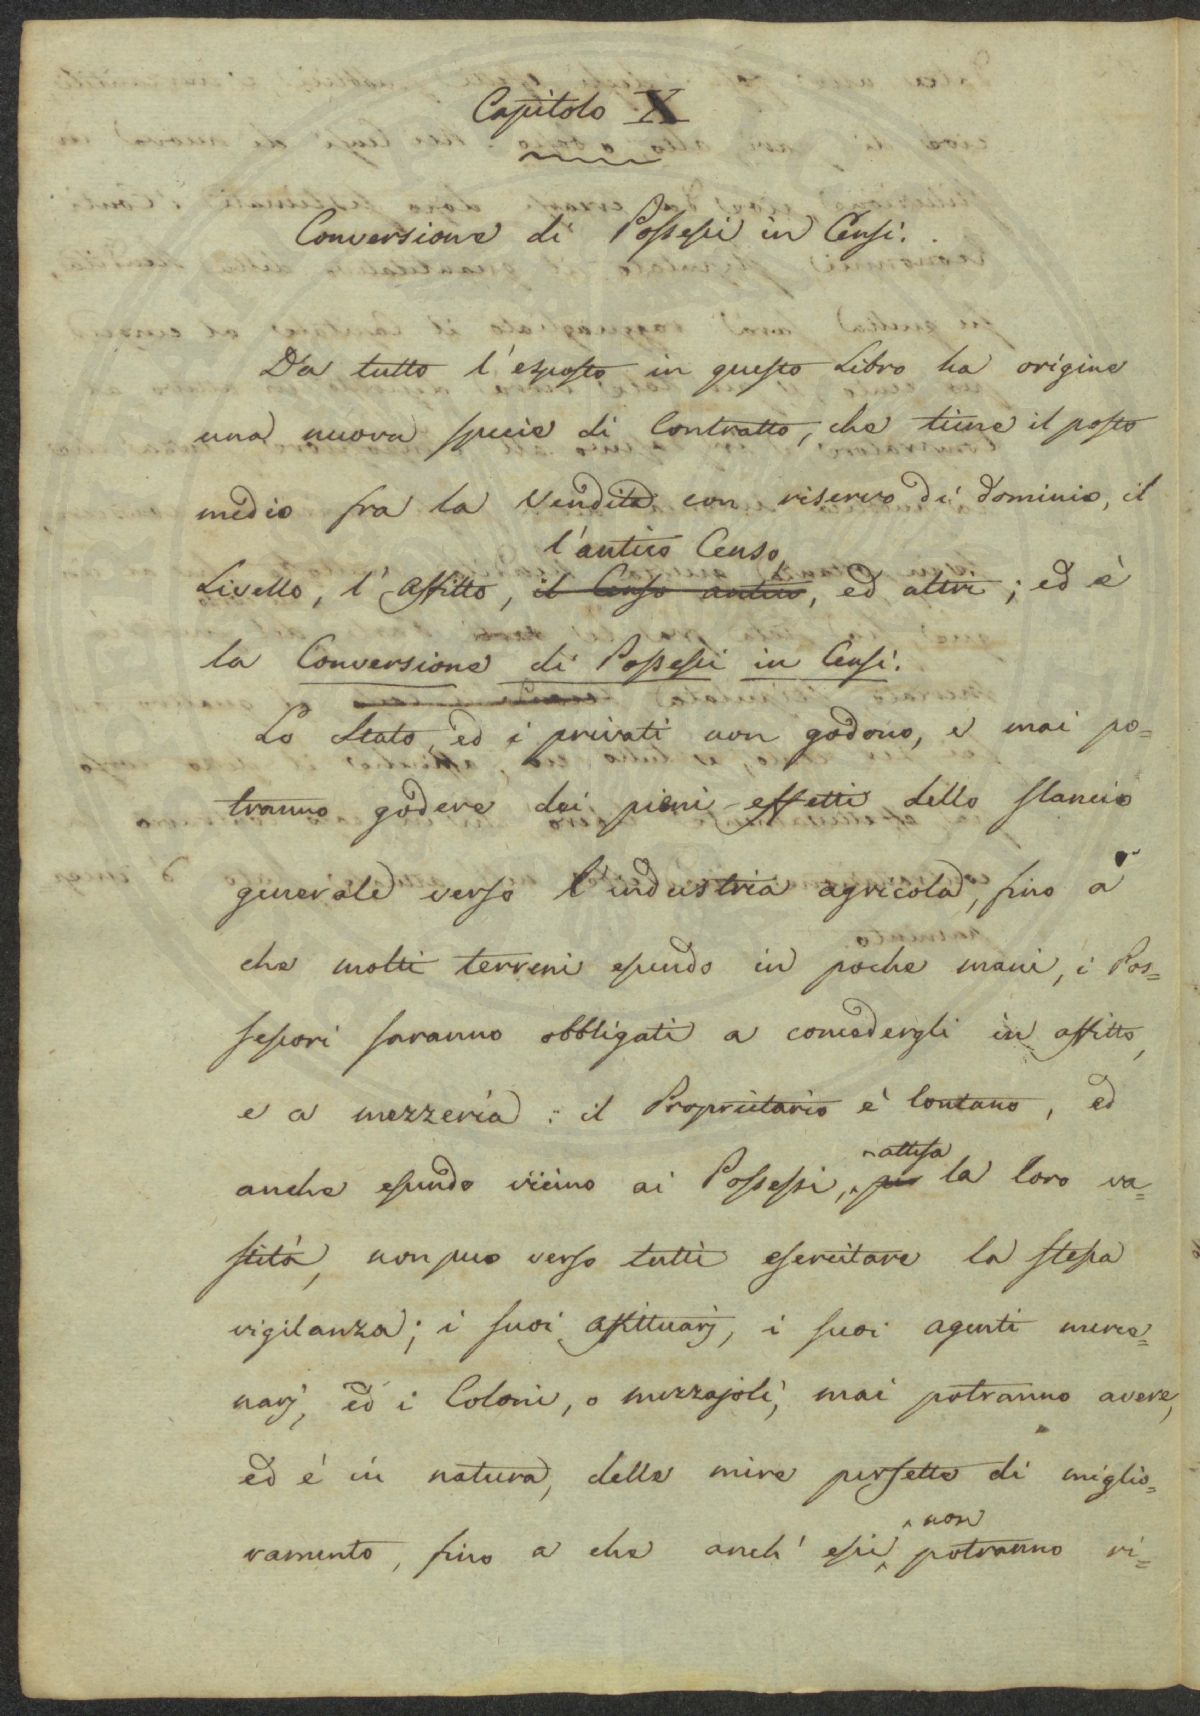 Capitolo X
Conversione di Possessi in Censi.
Da tutto l'esposto in questo Libro ha origine
una nuova specie di Contratto, che tiene il posto
medio fra la Vendita con riservo di dominio, il
l'antico Censo
Livello, l'Affitto, il Censo antico, ed altri; ed è
la Conversione di Possessi in Censi.
Lo Stato, ed i privati non godono, e mai po=
tranno godere dei pieni effetti dello slancio
generale verso l'industria agricola, fino a
che molti terreni essendo in poche mani, i Pos=
sessori saranno obbligati a concedergli in affitto,
e a mezzeria: il Proprietario è lontano, ed
attesa
anche essendo vicino ai Possessi, per la loro va=
stità, non può verso tutti esercitare la stessa
vigilanza; i suoi affittuarj, i suoi agenti merce=
narj, ed i Coloni, o mezzajoli, mai potranno avere,
ed è in natura, delle mire perfette di miglio=
non
ramento, fino a che anch'essi potranno ri=